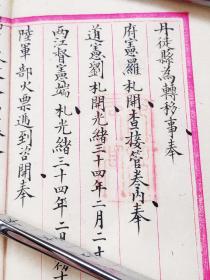 丹徒縣為轉移事奉
府憲羅 札開查接管卷內奉
道憲劉 札開光緒三十四年二月二十
兩江督憲端 札光緒三十四年二月
陸軍部火票遞到咨開奉